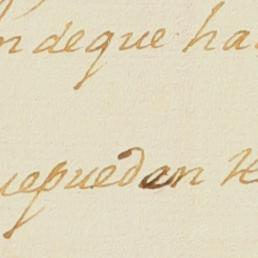 n deque ha
uepuedan